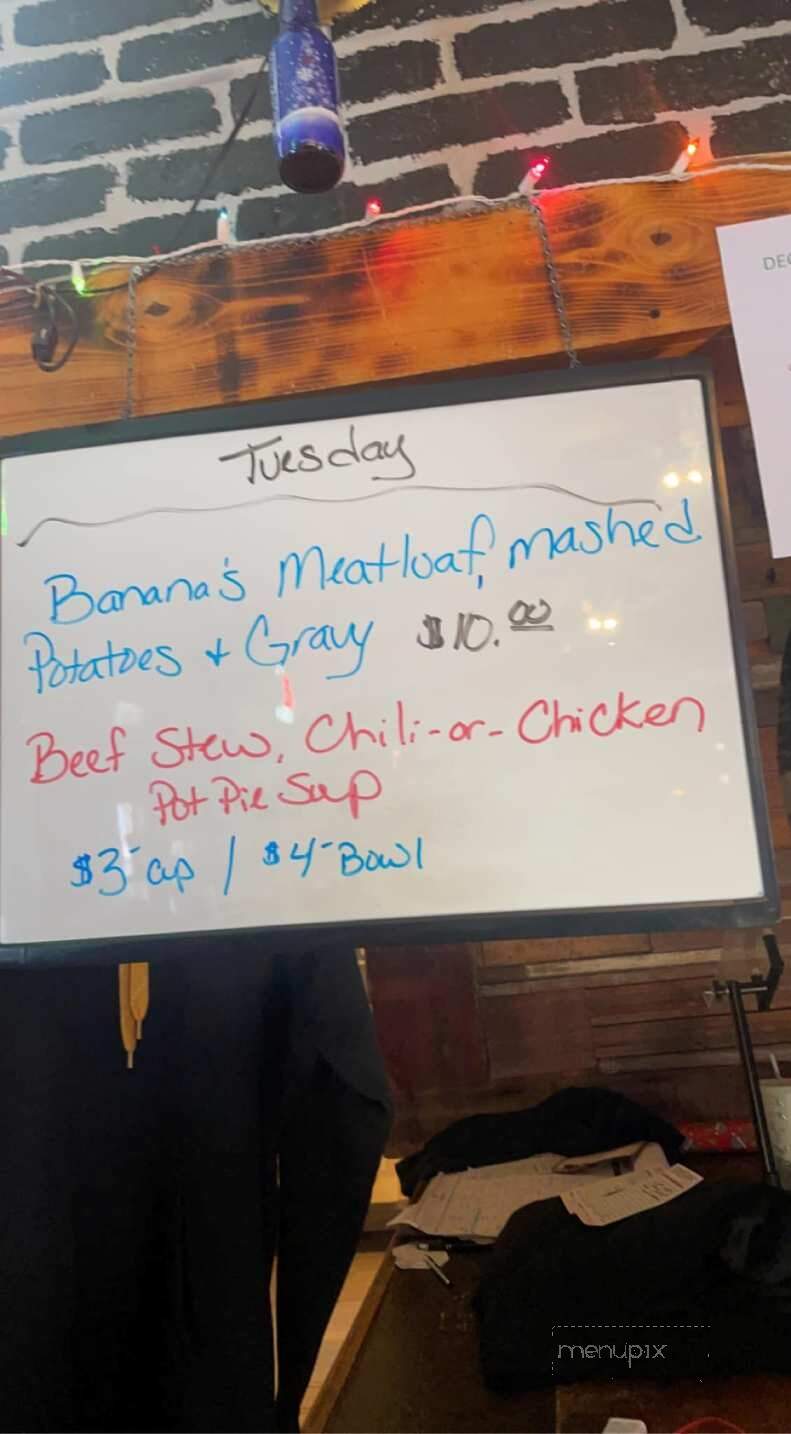 DEC
Tuesday
Banana's Meatloaf, mashed
Potatoes + Gravy $10.00
Beef Stew, Chili-or-Chicken
Pot Pie Soup
$3- cup / $4- Bowl
menupix